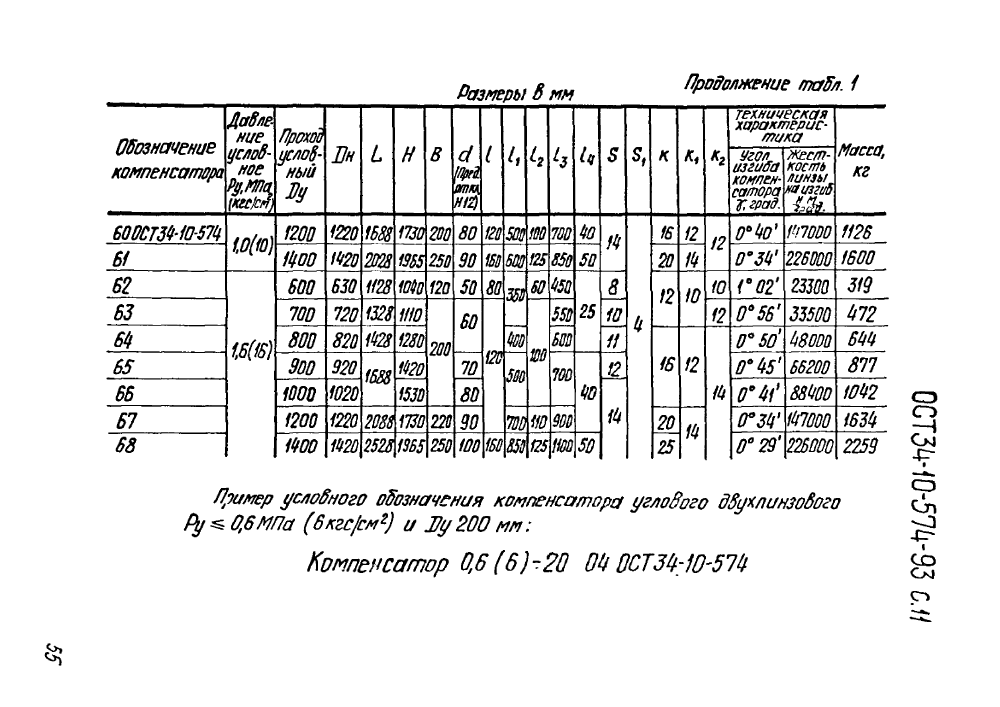 Размеры в мм
Продолжение табл. 1
Обозначение компенсатора | Давление условное Ру, МПа (кгс/см²) | Проход условный Dу | Dн | L | H | B | d (Пред. откл. H12) | l | l₁ | l₂ | l₃ | l₄ | S | S₁ | K | K₁ | K₂ | техническая характеристика | Угол изгиба компенсатора γ, град. | Жесткость линзы на изгиб | Масса, кг
60 ОСТ34-10-574 | 1,0(10) | 1200 | 1220 | 1688 | 1730 | 200 | 80 | 120 | 500 | 100 | 700 | 40 | 14 | 4 | 16 | 12 | 12 | 0°40' | 147000 | 1126
61 | 1400 | 1420 | 2028 | 1965 | 250 | 90 | 160 | 600 | 125 | 850 | 50 | 20 | 14 | 0°34' | 226000 | 1600
62 | 1,6(16) | 600 | 630 | 1128 | 1040 | 120 | 50 | 80 | 350 | 60 | 450 | 25 | 8 | 12 | 10 | 10 | 1°02' | 23300 | 319
63 | 700 | 720 | 1328 | 1110 | 200 | 60 | 120 | 100 | 550 | 10 | 12 | 0°56' | 33500 | 472
64 | 800 | 820 | 1428 | 1280 | 400 | 600 | 11 | 16 | 12 | 14 | 0°50' | 48000 | 644
65 | 900 | 920 | 1688 | 1420 | 70 | 500 | 700 | 40 | 12 | 0°45' | 66200 | 877
66 | 1000 | 1020 | 1530 | 80 | 14 | 0°41' | 88400 | 1042
67 | 1200 | 1220 | 2088 | 1730 | 220 | 90 | 700 | 110 | 900 | 20 | 14 | 0°34' | 147000 | 1634
68 | 1400 | 1420 | 2528 | 1965 | 250 | 100 | 160 | 850 | 125 | 1100 | 50 | 25 | 0°29' | 226000 | 2259
Пример условного обозначения компенсатора углового двухлинзового
Ру ≤ 0,6 МПа (6 кгс/см²) и Dу 200 мм:
Компенсатор 0,6 (6)-20 04 ОСТ34-10-574
ОСТ34-10-574-93 с.11
55